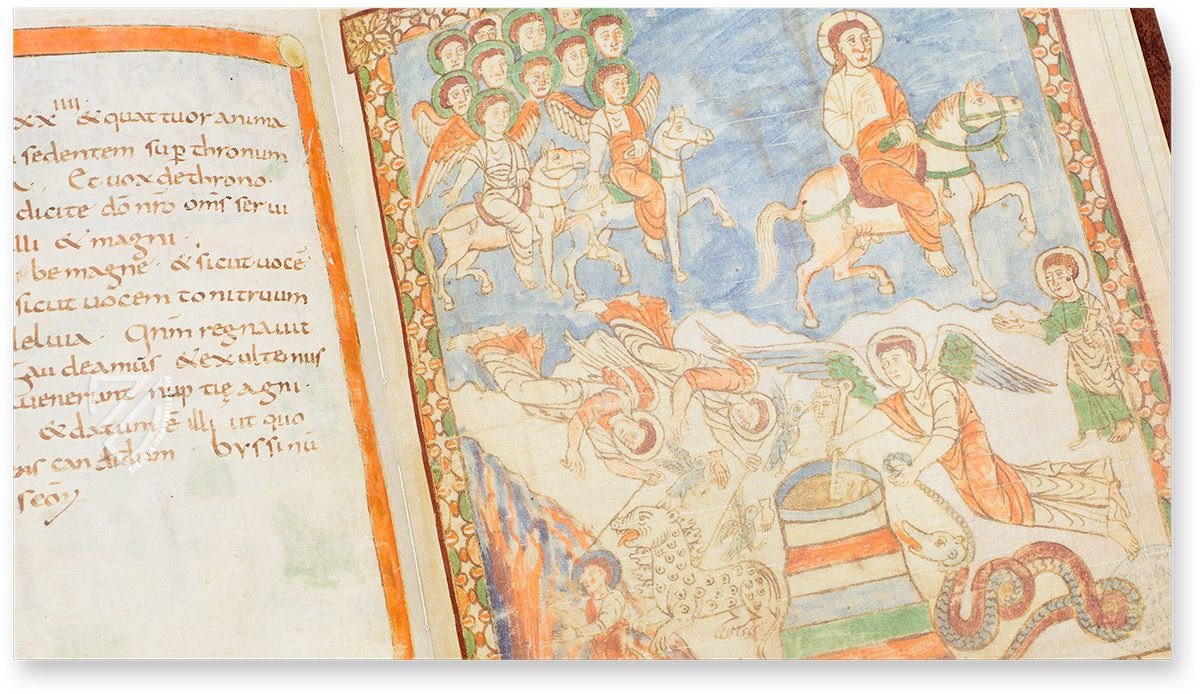 xx IIII · & quattuor anima
sedentem sup thronum
Et vox de throno ·
dicite dōn nr̄o oms̄ serui
illi & magni ·
be magne · & sicut vocē
sicut uocem tonitruum
leluia · Qnm̄ regnauit
Gaudeamus & exultemus
uenerunt nuptię agni ·
& datum ē illi ut quo
candidum · byssinū